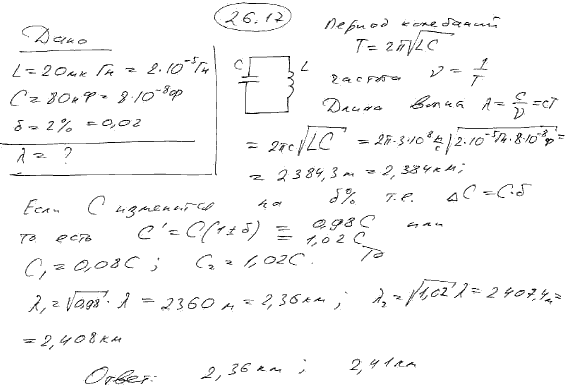 26.17
Дано
L=20мкГн=2·10⁻⁵Гн
C=80нФ=8·10⁻⁸Ф
δ=2%=0,02
λ=?
C L
Период колебаний
T=2π√LC
частота ν=1/T
Длина волны λ=c/ν=cT
=2πc√LC=2π·3·10⁸ м/с √2·10⁻⁵Гн·8·10⁻⁸Ф=
=2384,3м=2,384км;
Если C изменится на δ% т.е. ΔC=C·δ
то есть C'=C(1±δ)=0,98C или
=1,02C То
C₁=0,08C; C₂=1,02C.
λ₁=√0,98·λ=2360м=2,36км; λ₂=√1,02λ=2407,4м=
=2,408км
Ответ: 2,36км; 2,41км